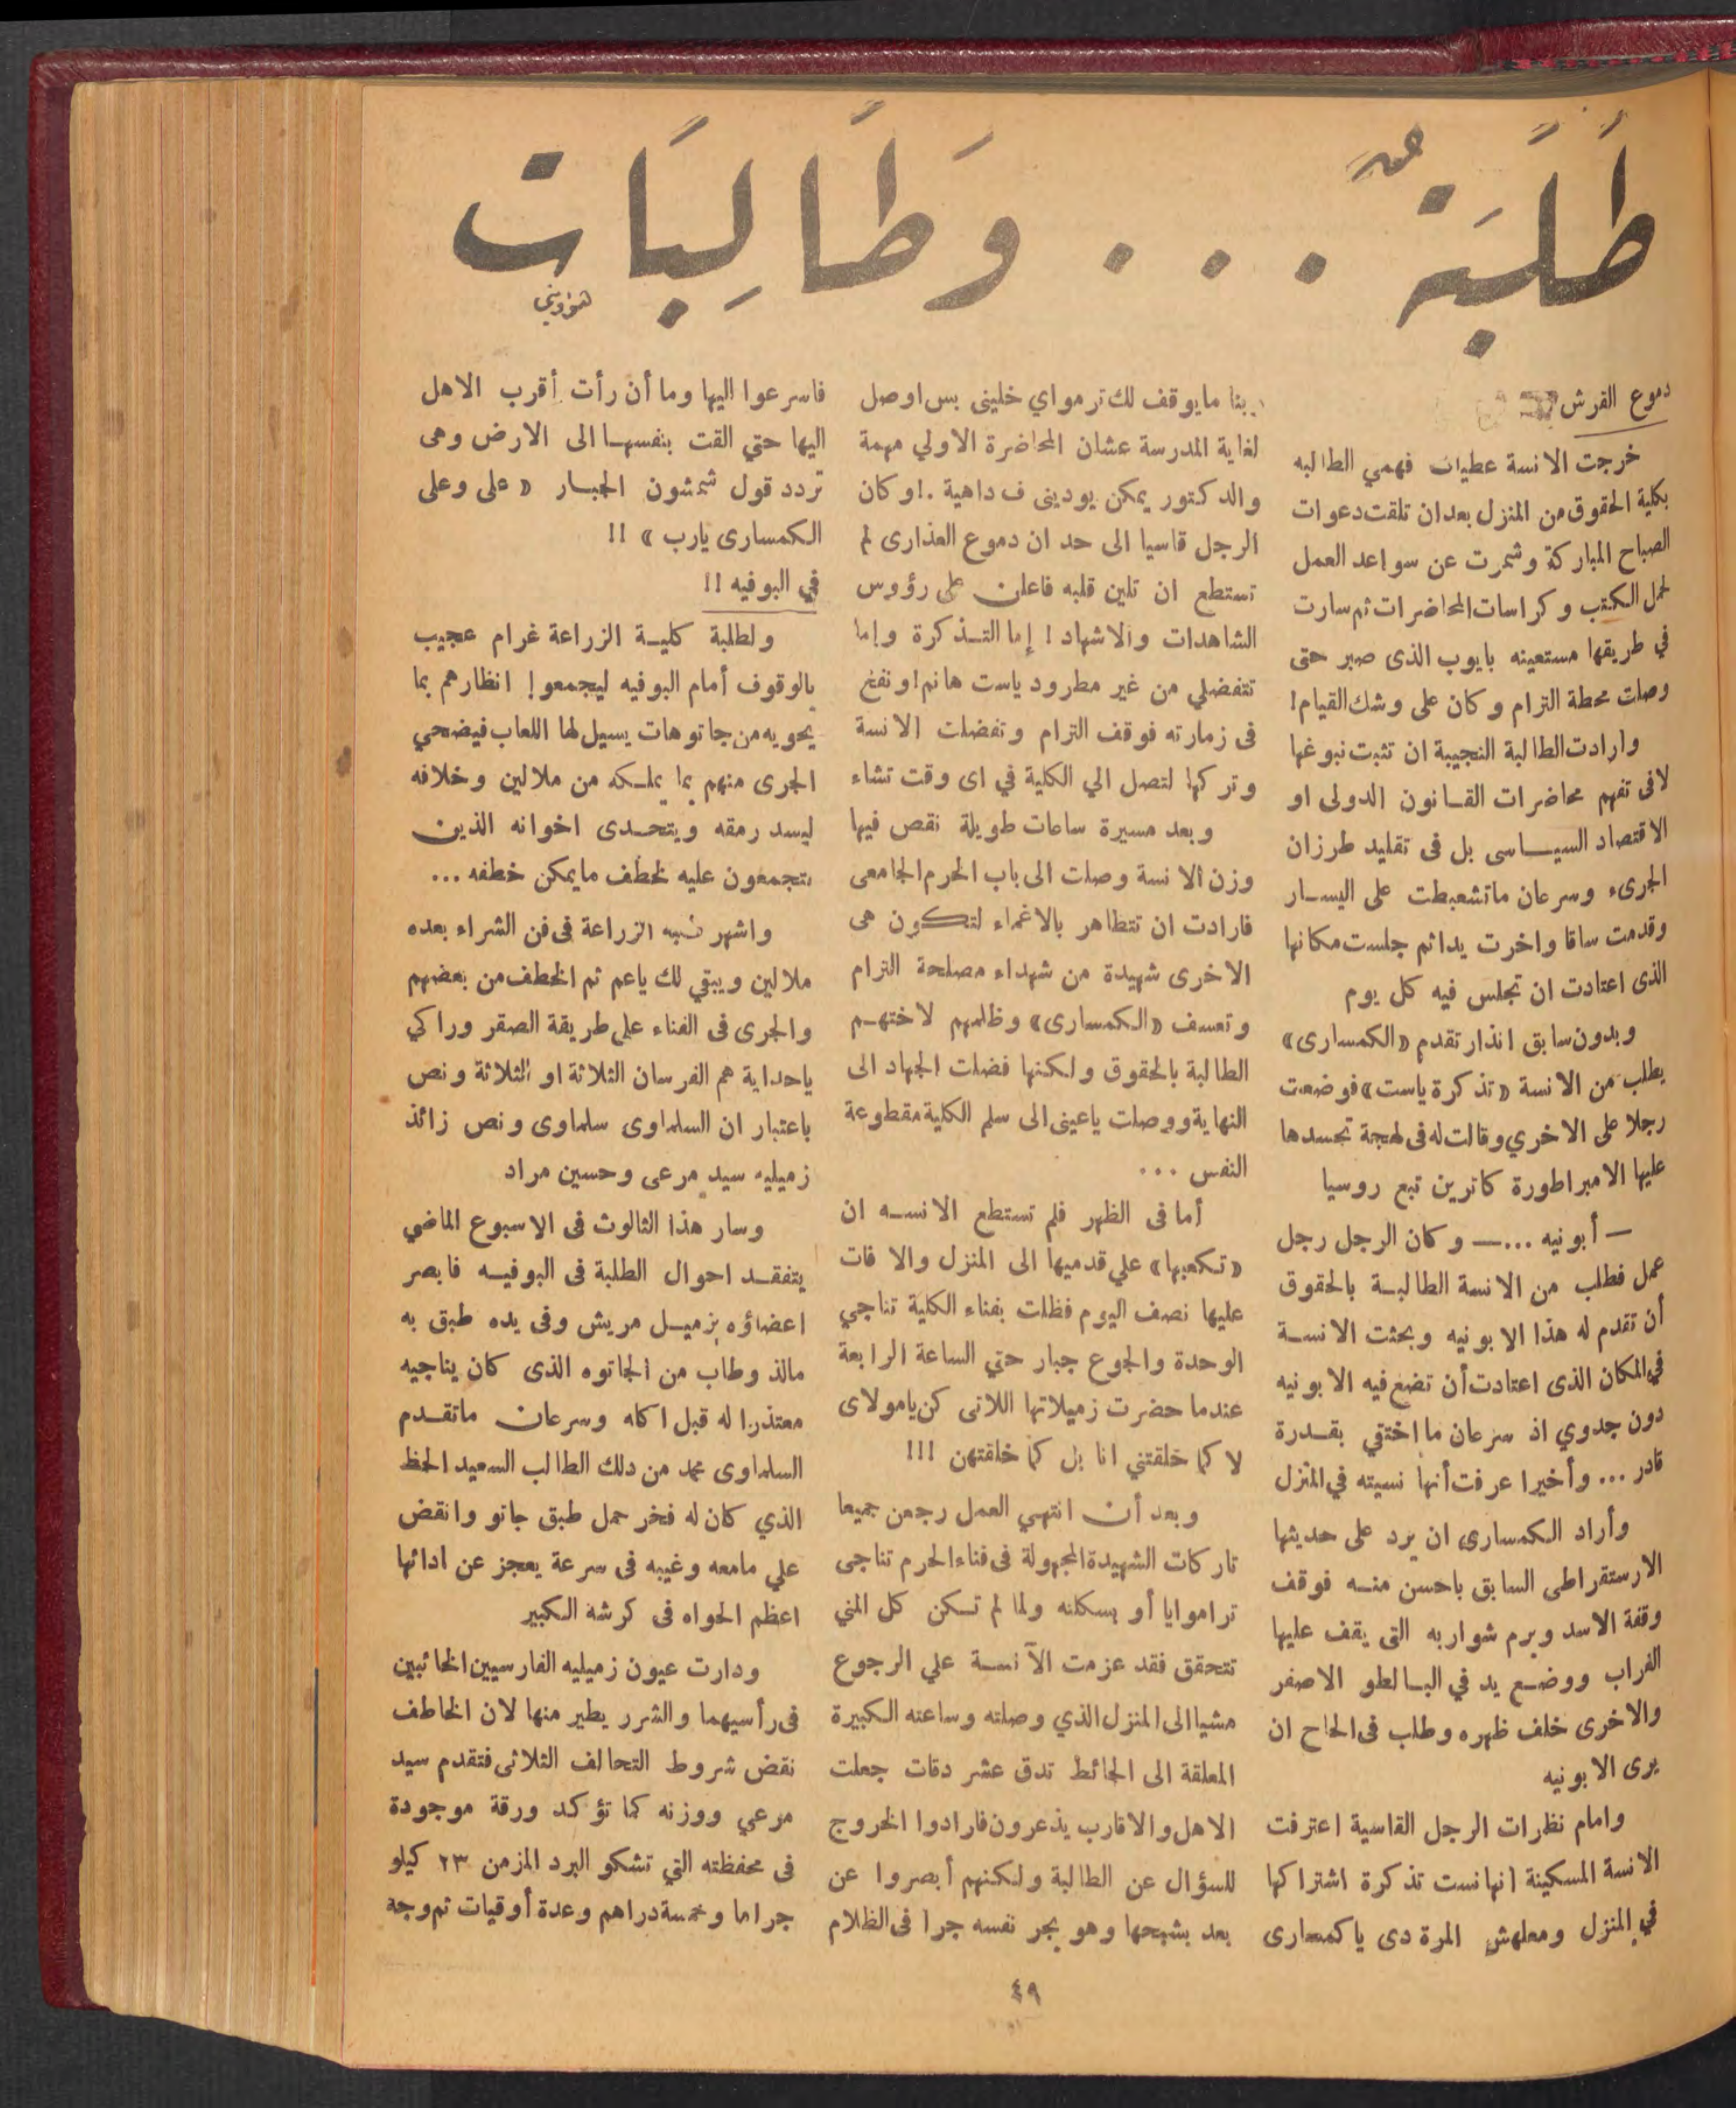 طَلَبَةٌ ... وَطَالِبَات
دموع الفرش
خرجت الانسة عطيات فهمي الطالبه
بكلية الحقوق من المنزل بعد ان تلقت دعوات
الصباح المباركة وشمرت عن سواعد العمل
لحمل الكتب وكراسات المحاضرات ثم سارت
في طريقها مستعينه بايوب الذى صبر حتى
وصلت محطة الترام وكان على وشك القيام!
وارادت الطالبة النجيبة ان تثبت نبوغها
لا فى تفهم محاضرات القانون الدولى او
الاقتصاد السياسى بل فى تقليد طرزان
الجرىء وسرعان ما تشعبطت على اليسار
وقدمت ساقا واخرت يدا ثم جلست مكانها
الذى اعتادت ان تجلس فيه كل يوم
وبدون سابق انذار تقدم «الكمسارى»
يطلب من الانسة «تذكرة ياست» فوضعت
رجلا على الاخري وقالت له فى لهجة تحسدها
عليها الامبراطورة كاترين تبع روسيا
— أبونيه ... — وكان الرجل رجل
عمل فطلب من الانسة الطالبة بالحقوق
أن تقدم له هذا الابونيه وبحثت الانسة
في المكان الذى اعتادت أن تضع فيه الابونيه
دون جدوي اذ سرعان ما اختفي بقدرة
قادر ... وأخيرا عرفت أنها نسيته في المنزل
وأراد الكمسارى ان يرد على حديثها
الارستقراطى السابق باحسن منه فوقف
وقفة الاسد وبرم شواربه التى يقف عليها
الغراب ووضع يد في البالطو الاصفر
والاخرى خلف ظهره وطلب فى الحاح ان
يرى الابونيه
وامام نظرات الرجل القاسية اعترفت
الانسة المسكينة انها نست تذكرة اشتراكها
في المنزل ومعلهش المرة دى يا كمسارى
ربنا مايوقف لك ترمواي خلينى بس اوصل
لغاية المدرسة عشان المحاضرة الاولي مهمة
والدكتور يمكن يودينى ف داهية .! وكان
الرجل قاسيا الى حد ان دموع العذارى لم
تستطع ان تلين قلبه فاعلن على رؤوس
الشاهدات والاشهاد ! إما التذكرة وإما
تتفضلي من غير مطرود ياست هانم! ونفخ
فى زمارته فوقف الترام وتفضلت الانسة
وتركها لتصل الي الكلية في اى وقت تشاء
وبعد مسيرة ساعات طويلة نقص فيها
وزن الانسة وصلت الى باب الحرم الجامعى
فارادت ان تتظاهر بالاغماء لتكون هى
الاخرى شهيدة من شهداء مصلحة الترام
وتعسف «الكمسارى» وظلمهم لاختهم
الطالبة بالحقوق ولكنها فضلت الجهاد الى
النهاية ووصلت ياعينى الى سلم الكلية مقطوعة
النفس ...
أما فى الظهر فلم تستطع الانسه ان
«تكعبها» علي قدميها الى المنزل والا فات
عليها نصف اليوم فظلت بفناء الكلية تناجي
الوحدة والجوع جبار حتي الساعة الرابعة
عندما حضرت زميلاتها اللاتى كن يامولاى
لا كما خلقتني انا بل كما خلقتهن !!!
وبعد أن انتهي العمل رجعن جميعا
تاركات الشهيدة المجهولة فى فناء الحرم تناجى
تراموايا أو بسكلته ولما لم تكن كل المني
تتحقق فقد عزمت الآنسة علي الرجوع
مشيا الى المنزل الذي وصلته وساعته الكبيرة
المعلقة الى الحائط تدق عشر دقات جعلت
الاهل والاقارب يذعرون فارادوا الخروج
للسؤال عن الطالبة ولكنهم أبصروا عن
بعد بشبحها وهو يجر نفسه جرا فى الظلام
فاسرعوا اليها وما أن رأت أقرب الاهل
اليها حتي القت بنفسها الى الارض وهى
تردد قول شمشون الجبار « على وعلى
الكمسارى يارب » !!
في البوفيه !!
ولطلبة كلية الزراعة غرام عجيب
بالوقوف أمام البوفيه ليجمعوا انظارهم بما
يحويه من جاتوهات يسيل لها اللعاب فيضحي
الجرى منهم بما يملكه من ملالين وخلافه
ليسد رمقه ويتحدى اخوانه الذين
يتجمعون عليه لخطف مايمكن خطفه ...
واشهر الزراعة فى فن الشراء بعده
ملالين ويبقي لك ياعم ثم الخطف من بعضهم
والجرى فى الفناء على طريقة الصقر وراكي
ياحداية هم الفرسان الثلاثة او الثلاثة ونص
باعتبار ان السلماوى سلماوى ونص زائد
زميليه سيد مرعى وحسين مراد
وسار هذا الثالوث فى الاسبوع الماضي
يتفقد احوال الطلبة فى البوفيه فابصر
اعضاؤه بزميل مريش وفى يده طبق به
مالذ وطاب من الجاتوه الذى كان يناجيه
معتذرا له قبل اكله وسرعان ماتقدم
السلماوى محمد من دلك الطالب السعيد الحظ
الذي كان له فخر حمل طبق جاتو وانقض
علي مامعه وغيبه فى سرعة يعجز عن ادائها
اعظم الحواه فى كرشه الكبير
ودارت عيون زميليه الفارسيين الخائبين
فى رأسيهما والشرر يطير منها لان الخاطف
نقض شروط التحالف الثلاثى فتقدم سيد
مرعي ووزنه كما تؤكد ورقة موجودة
فى محفظته التي تشكو البرد المزمن ٢٣ كيلو
جراما وخمسة دراهم وعدة أوقيات ثم وجه
٤٩